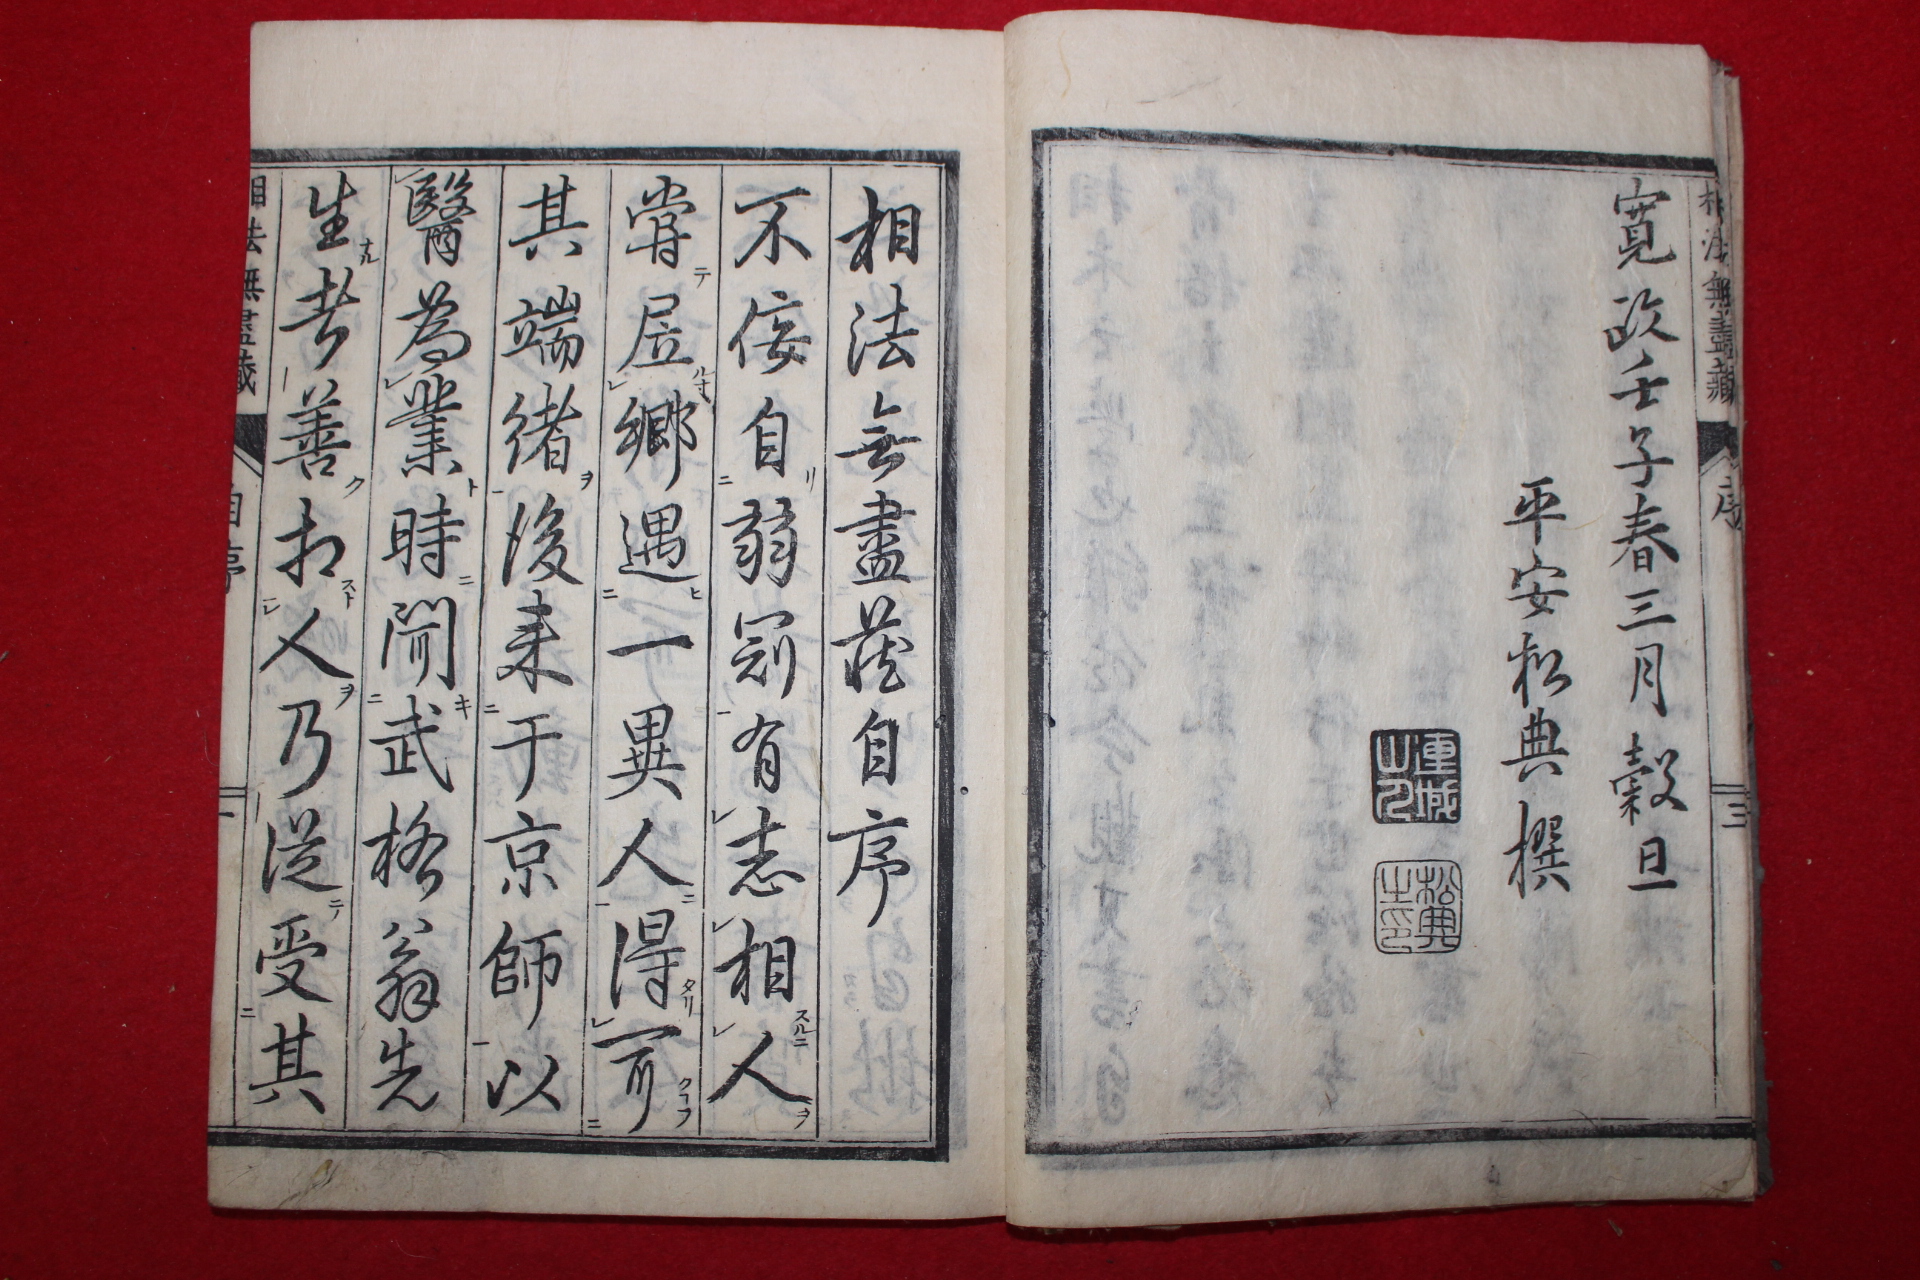 相法無盡藏
序
三
寬政壬子春三月穀旦
平安松典撰
松典之印
相法無盡藏自序
不佞自弱冠有志相人
嘗居鄉遇一異人得聞
其端緒後来于京師以
醫為業時聞武格翁先
生者善相人乃從受其
相法無盡藏
自序
一